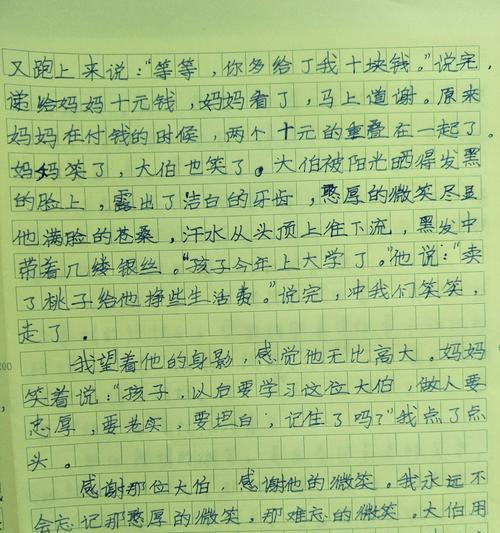 又跑上来说：“等等，你多给了我十块钱。”说完，
递给妈妈十元钱，妈妈看了，马上道谢。原来
妈妈在付钱的时候，两个十元的重叠在一起了。
妈妈笑了，大伯也笑了。大伯被阳光晒得发黑
的脸上，露出了洁白的牙齿，憨厚的微笑尽显
他满脸的苍桑，汗水从头顶上往下流，黑发中
带着几缕银丝。“孩子今年上大学了。”他说：“卖
了桃子给他挣些生活费。”说完，冲我们笑笑，
走了。
我望着他的身影，感觉他无比高大。妈妈
笑着说：“孩子，以后要学习这位大伯，做人要
忠厚，要老实，要坦白，记住了吗？”我点了点
头。
感谢那位大伯，感谢他的微笑。我永远不
会忘记那憨厚的微笑，那难忘的微笑。大伯用